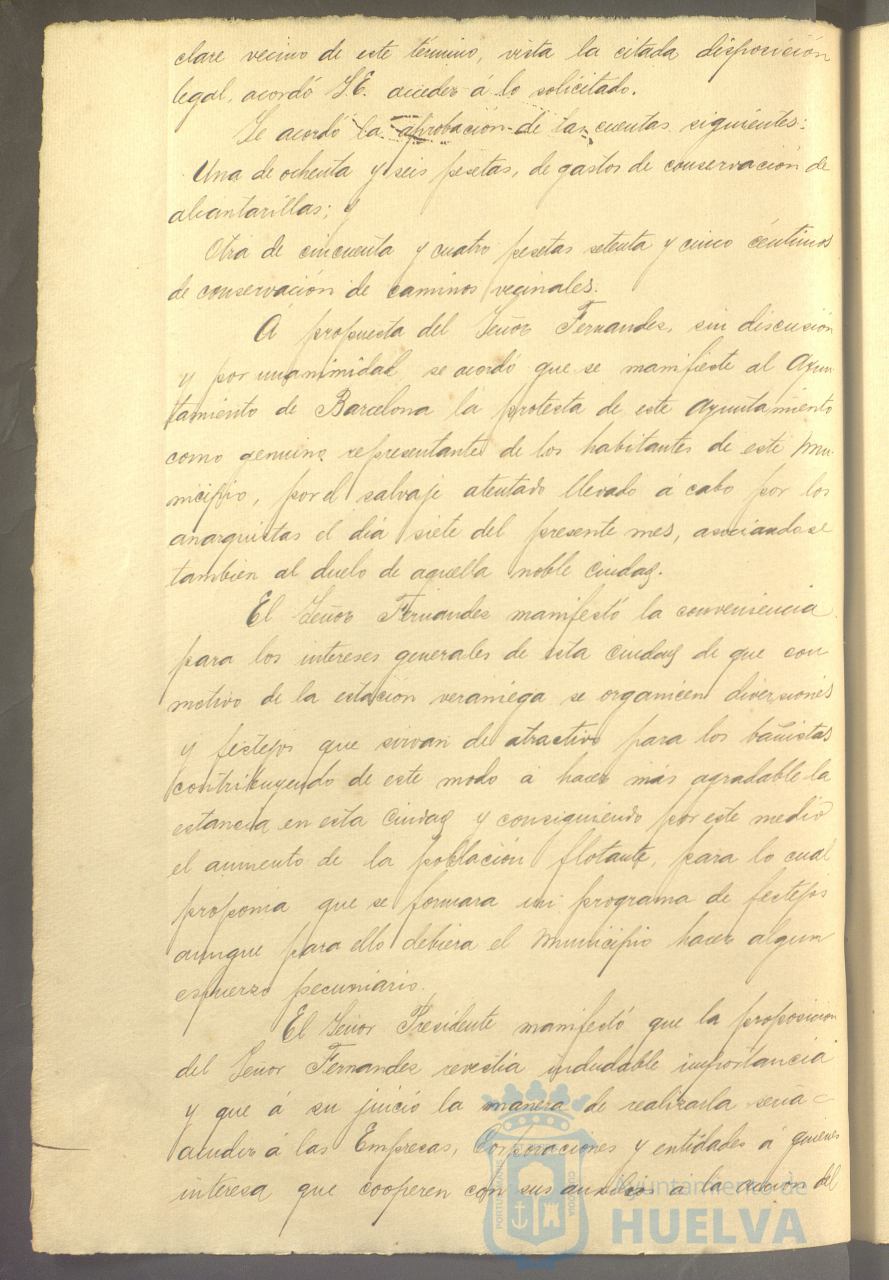 clare vecino de este término, vista la citada disposición
legal, acordó S.E. acceder á lo solicitado.
Se acordó la aprobación de las cuentas siguientes:
Una de ochenta y seis pesetas, de gastos de conservación de
alcantarillas; y
Otra de cincuenta y cuatro pesetas setenta y cinco céntimos
de conservación de caminos vecinales.
Á propuesta del Señor Fernandez, sin discusión
y por unanimidad se acordó que se manifieste al Ayun-
tamiento de Barcelona la protesta de este Ayuntamiento
como genuino representante de los habitantes de este Mu-
nicipio, por el salvaje atentado llevado á cabo por los
anarquistas el dia siete del presente mes, asociandose
tambien al duelo de aquella noble Ciudad.
El Señor Fernandez manifestó la conveniencia
para los intereses generales de esta Ciudad de que con
motivo de la estación veraniega se organicen diversiones
y festejos que sirvan de atractivo para los bañistas
contribuyendo de este modo á hacer más agradable la
estancia en esta Ciudad y consiguiendo por este medio
el aumento de la población flotante, para lo cual
proponia que se formara un programa de festejos
aunque para ello debiera el Municipio hacer algun
esfuerzo pecuniario.
El Señor Presidente manifestó que la proposicion
del Señor Fernandez revestia indudable importancia
y que á su juicio la manera de realizarla seria
acudir á las Empresas, Corporaciones y entidades á quienes
interesa que cooperen con sus auxilios a la accion del
Ayuntamiento de
HUELVA